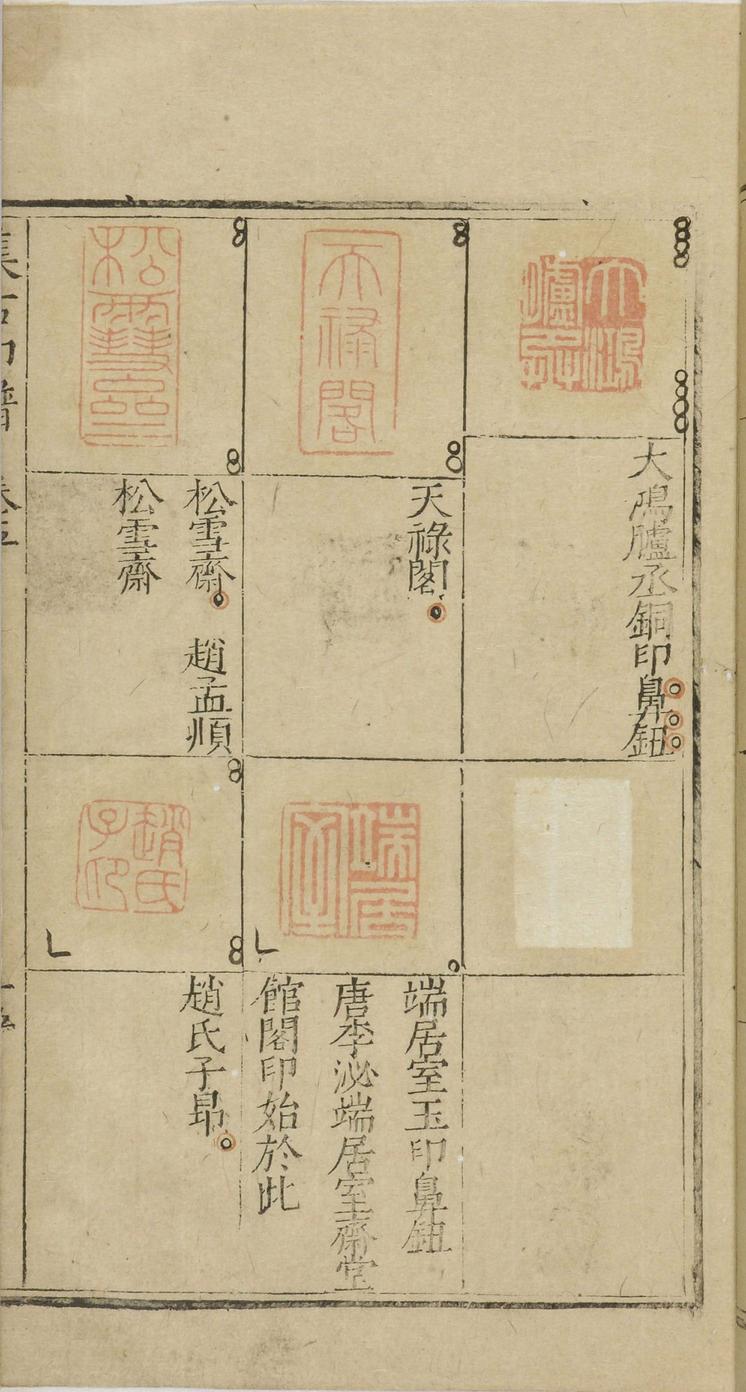 大鴻臚丞
大鴻臚丞銅印鼻鈕
天祿閣
天祿閣
松雪齋
松雪齋 趙孟頫
松雪齋
端居室
端居室玉印鼻鈕
唐李泌端居室齋堂
館閣印始於此
趙氏子印
趙氏子昂
集古印譜 卷五